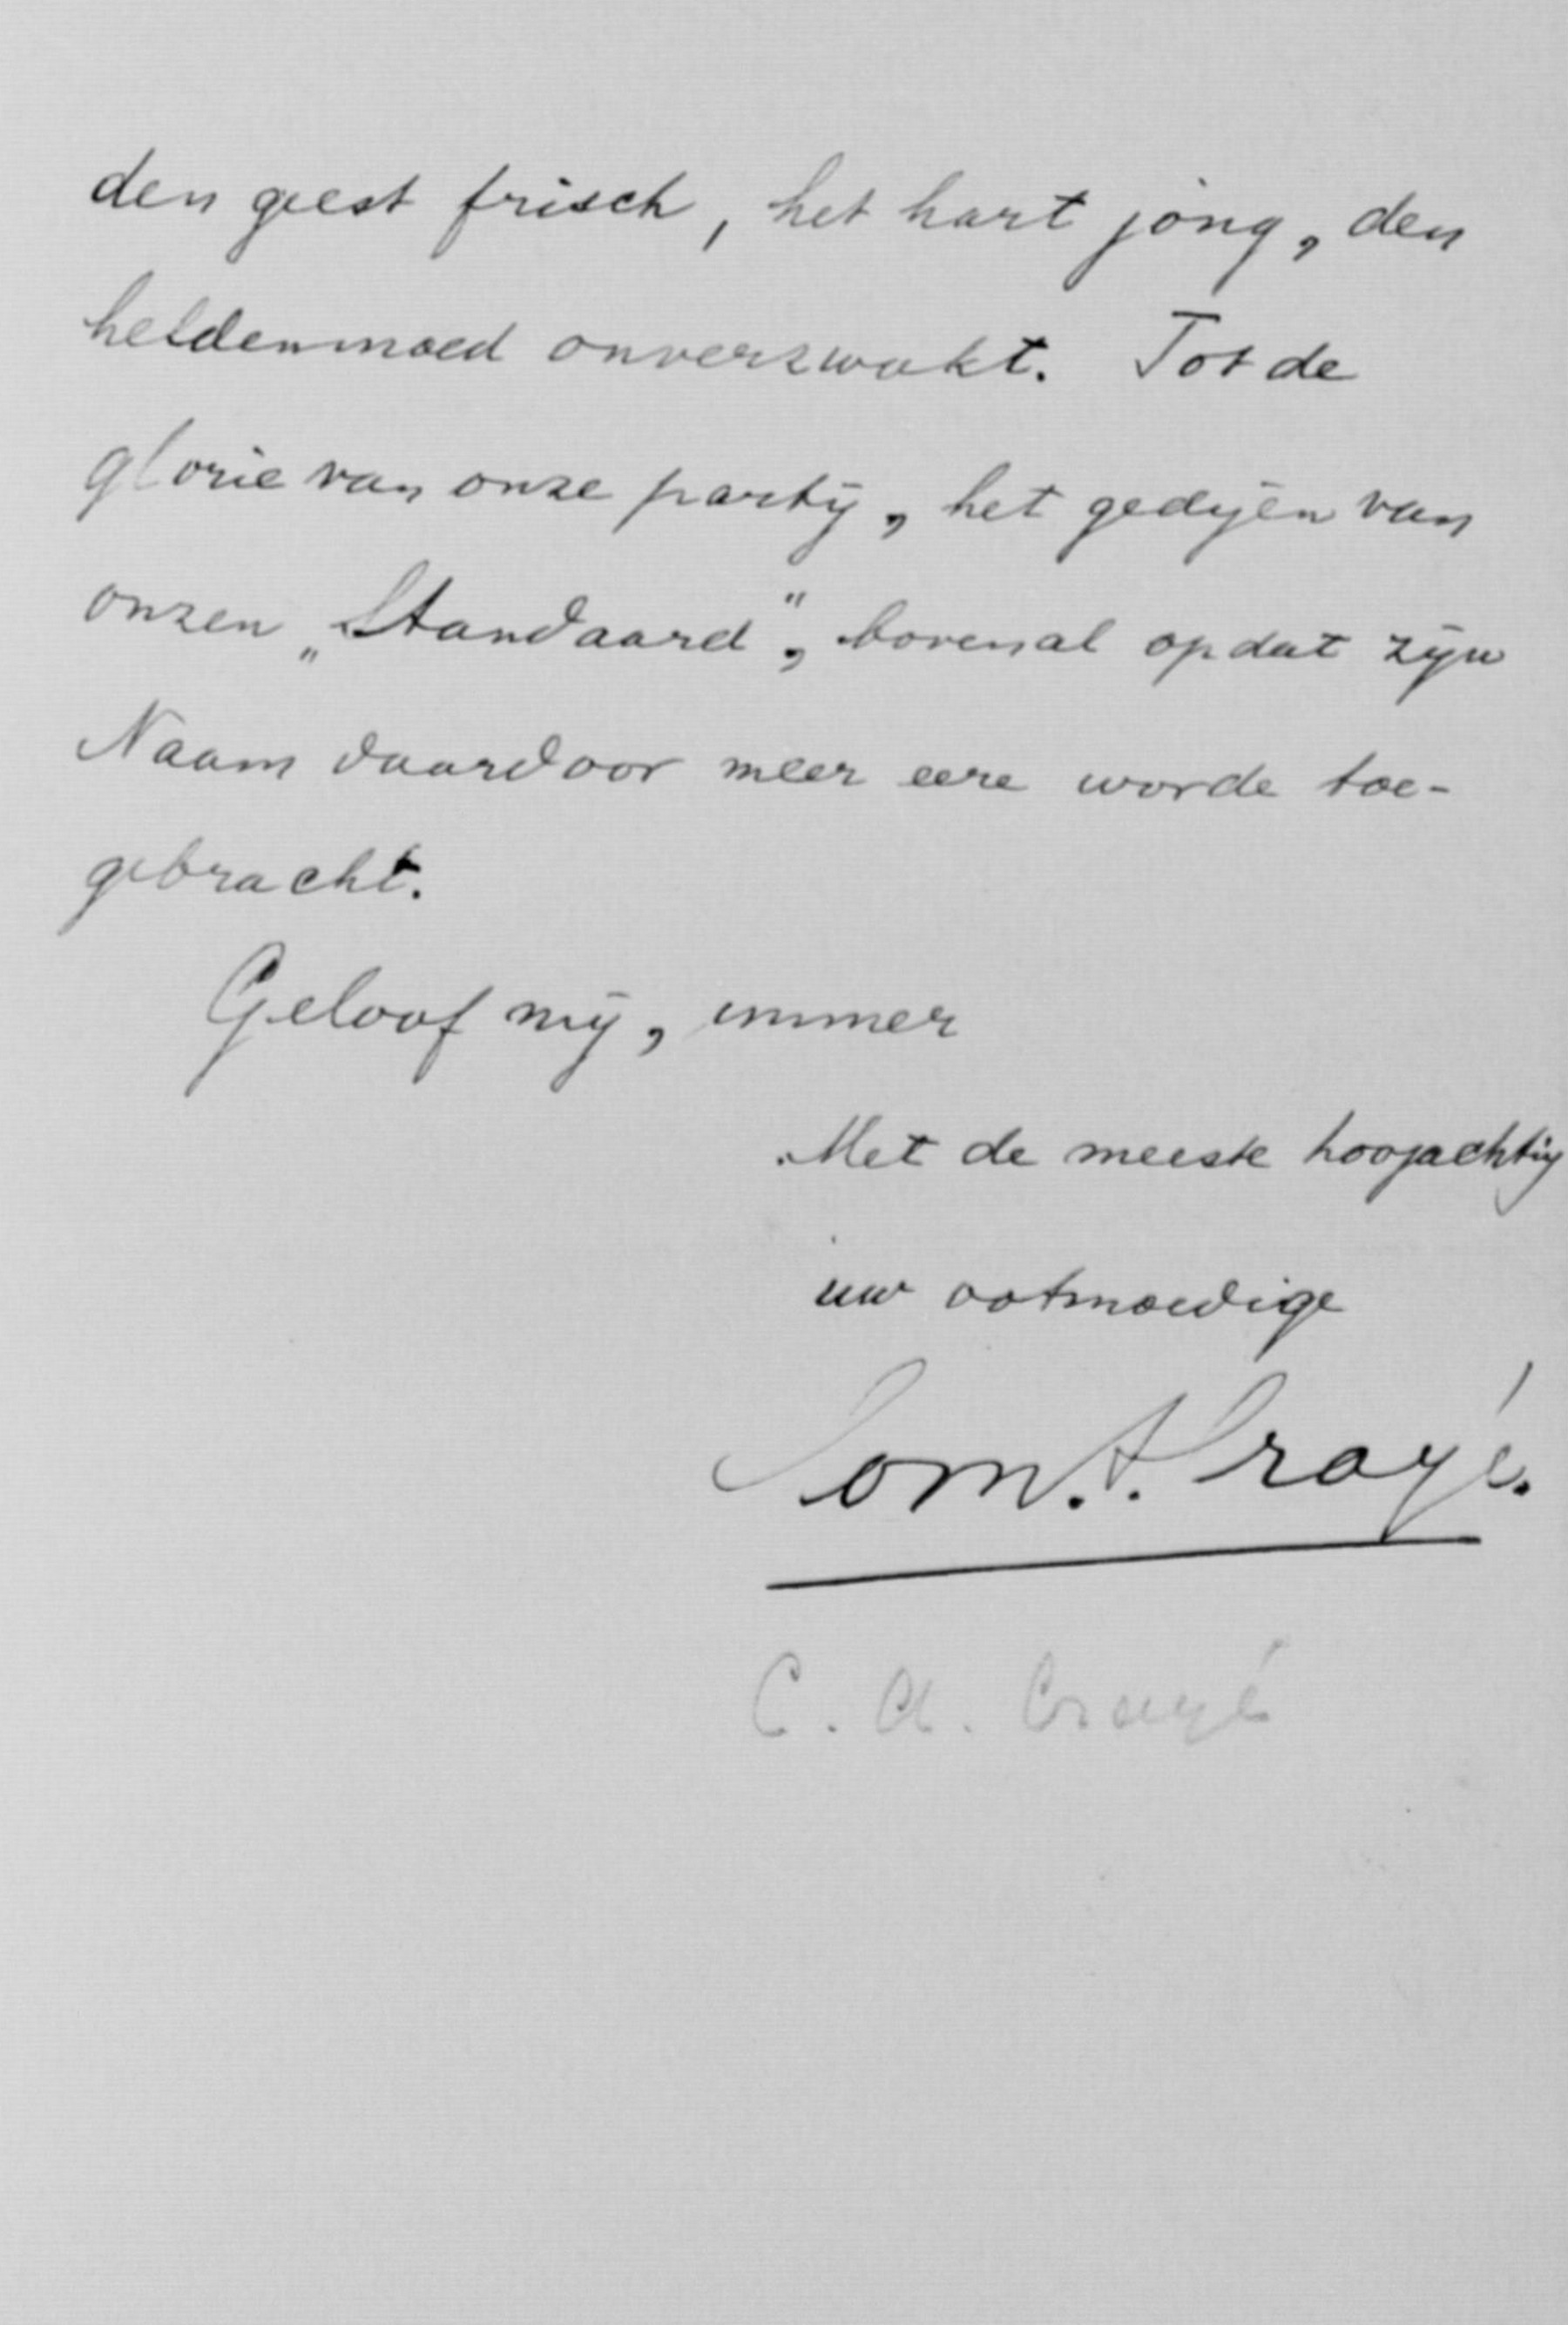 den geest frisch, het hart jong, den
heldenmoed onverzwakt. Tot de
glorie van onze partij, het gedijen van
onzen „Standaard”, bovenal opdat zijn
Naam daardoor meer eere worde toe-
gebracht.
Geloof mij, immer
Met de meeste hoogachting
uw ootmoedige
Com. A. Crayé.
C. A. Crayé